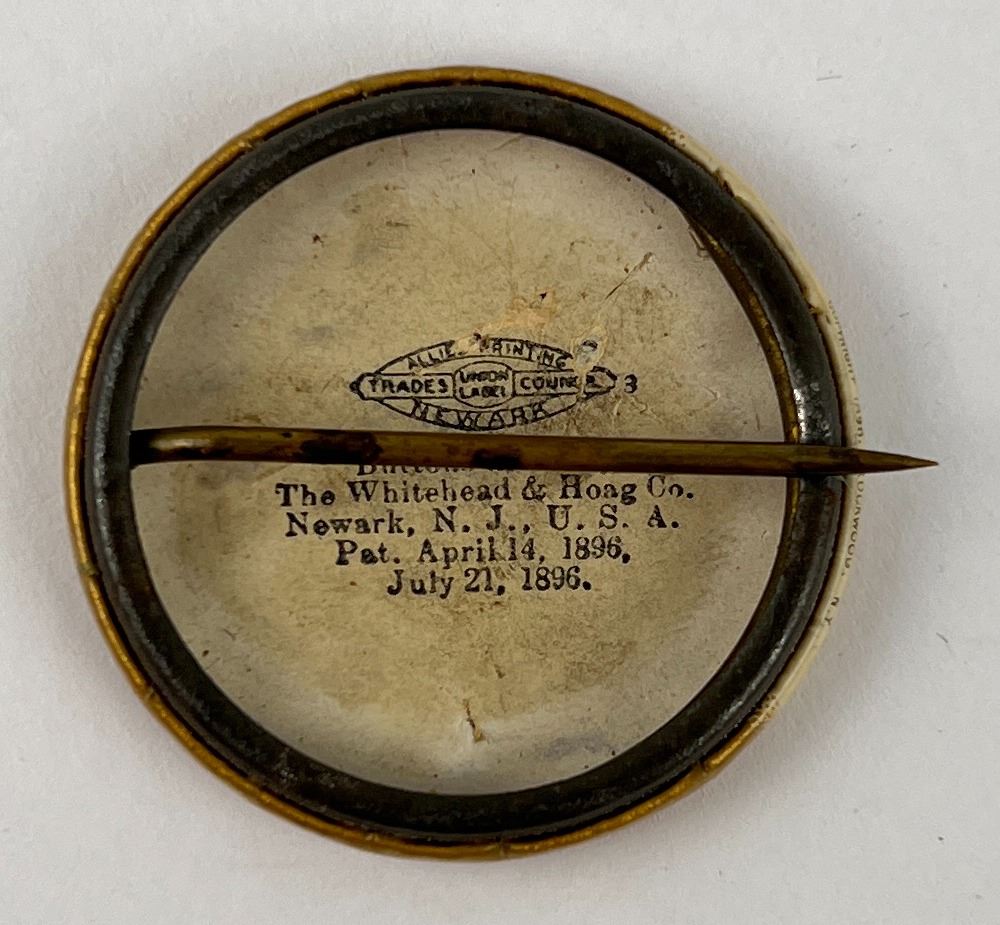 ALLIED PRINTING
TRADES UNION LABEL COUNCIL 3
NEWARK
Button
The Whitehead & Hoag Co.
Newark, N. J., U. S. A.
Pat. April 14, 1896,
July 21, 1896.
N.Y.